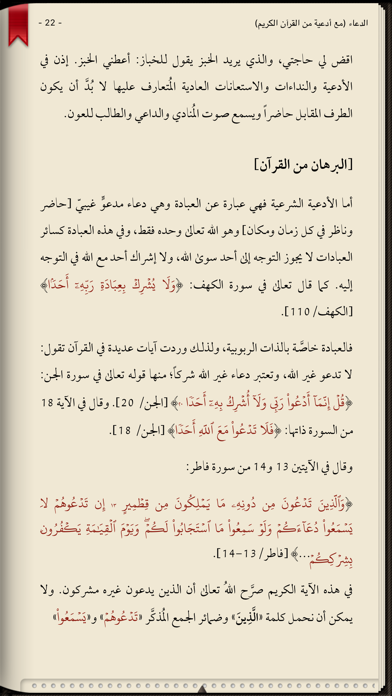 الدعاء (مع أدعية من القران الكريم)
- 22 -
اقض لي حاجتي، والذي يريد الخبز يقول للخباز: أعطني الخبز. إذن في
الأدعية والنداءات والاستعانات العادية المُتعارف عليها لا بُدَّ أن يكون
الطرف المقابل حاضراً ويسمع صوت المُنادي والداعي والطالب للعون.
[البرهان من القرآن]
أما الأدعية الشرعية فهي عبارة عن العبادة وهي دعاء مدعوٍّ غيبيّ [حاضر
وناظر في كل زمان ومكان] وهو الله تعالى وحده فقط، وفي هذه العبادة كسائر
العبادات لا يجوز التوجه إلى أحد سوىٰ الله، ولا إشراك أحد مع الله في التوجه
إليه. كما قال تعالى في سورة الكهف: ﴿وَلَا يُشْرِكْ بِعِبَادَةِ رَبِّهِۦٓ أَحَدًۢا﴾
[الكهف/ 110].
فالعبادة خاصَّة بالذات الربوبية، ولذلك وردت آيات عديدة في القرآن تقول:
لا تدعو غير الله، وتعتبر دعاء غير الله شركاً؛ منها قوله تعالى في سورة الجن:
﴿قُلْ إِنَّمَآ أَدْعُوا۟ رَبِّى وَلَآ أُشْرِكُ بِهِۦٓ أَحَدًا ٢٠﴾ [الجن/ 20]. وقال في الآية 18
من السورة ذاتها: ﴿فَلَا تَدْعُوا۟ مَعَ ٱللَّهِ أَحَدًا﴾ [الجن/ 18].
وقال في الآيتين 13 و14 من سورة فاطر:
﴿وَٱلَّذِينَ تَدْعُونَ مِن دُونِهِۦ مَا يَمْلِكُونَ مِن قِطْمِيرٍ ١٣ إِن تَدْعُوهُمْ لَا
يَسْمَعُوا۟ دُعَآءَكُمْ وَلَوْ سَمِعُوا۟ مَا ٱسْتَجَابُوا۟ لَكُمْ ۖ وَيَوْمَ ٱلْقِيَـٰمَةِ يَكْفُرُونَ
بِشِرْكِكُمْ...﴾ [فاطر/ 13-14].
في هذه الآية الكريم صرَّح اللهُ تعالى أن الذين يدعون غيره مشركون. ولا
يمكن أن نحمل كلمة «الَّذِينَ» وضمائر الجمع المُذكَّر «تَدْعُوهُمْ» و«يَسْمَعُوا۟»